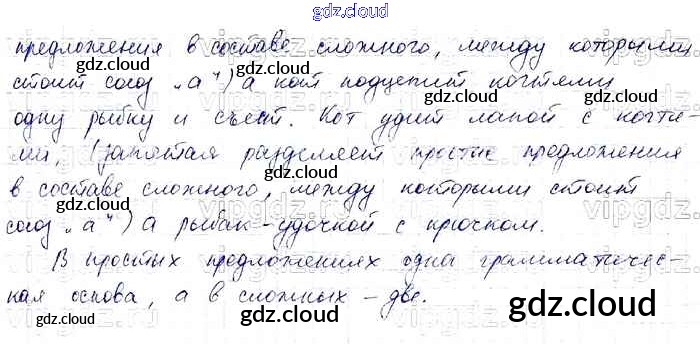 gdz.cloud
предложения в составе сложного, между которыми
стоит союз „а“) а кот подцепит когтями
одну рыбку и съест. Кот удит лапой с когтя-
ми, (запятая разделяет простые предложения
в составе сложного, между которыми стоит
союз „а“) а рыбак-удочкой с крючком.
В простых предложениях одна грамматичес-
кая основа, а в сложных – две.
gdz.cloud
gdz.cloud
gdz.cloud
gdz.cloud
gdz.cloud
gdz.cloud
gdz.cloud
gdz.cloud
gdz.cloud
gdz.cloud
gdz.cloud